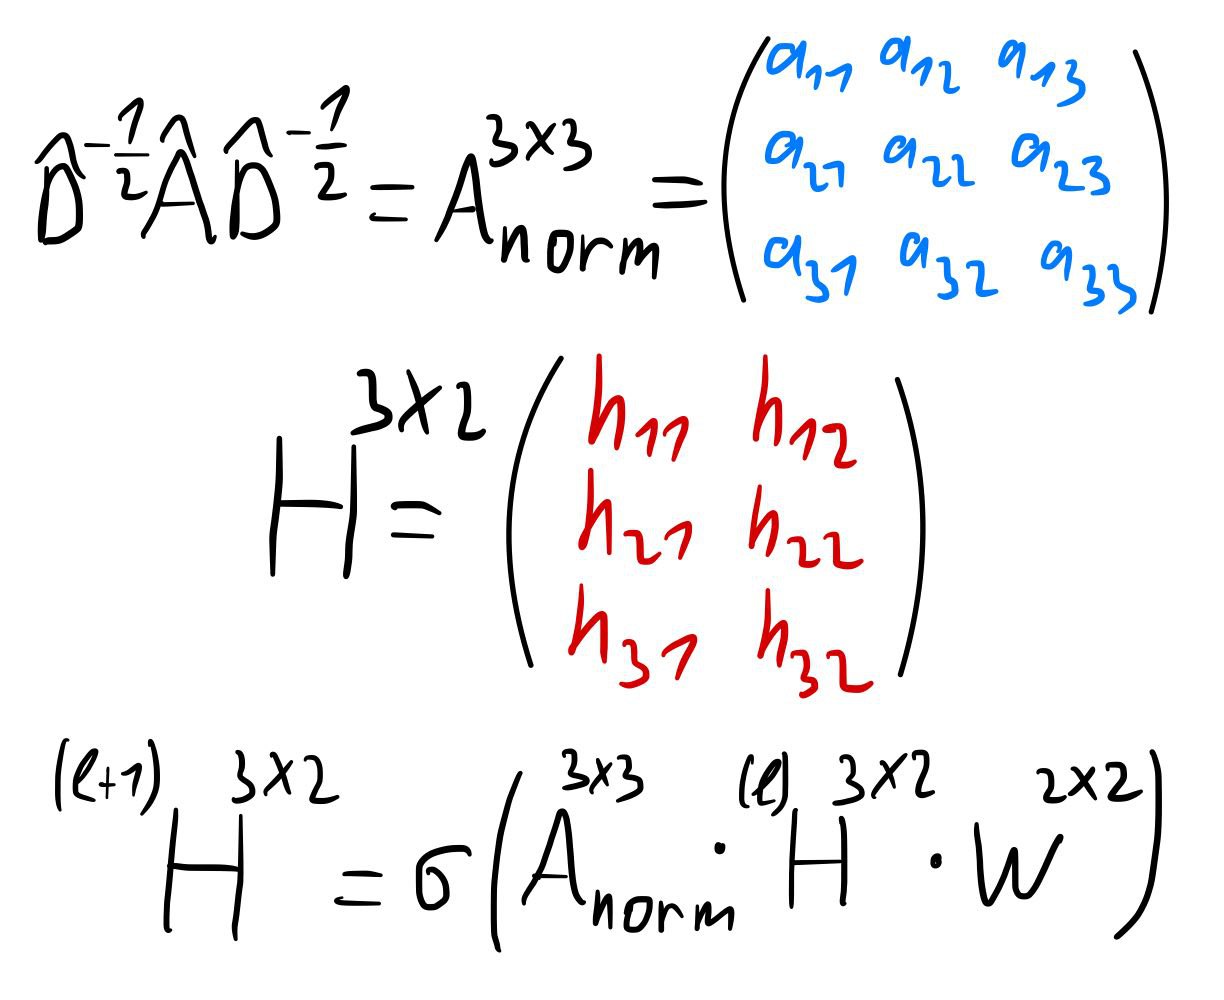 D̂^{-1/2} Â D̂^{-1/2} = A_{norm}^{3×3} = ( a_{11} a_{12} a_{13}
a_{21} a_{22} a_{23}
a_{31} a_{32} a_{33} )
H^{3×2} = ( h_{11} h_{12}
h_{21} h_{22}
h_{31} h_{32} )
^{(l+1)}H^{3×2} = σ( A_{norm}^{3×3} · ^{(l)}H^{3×2} · W^{2×2} )